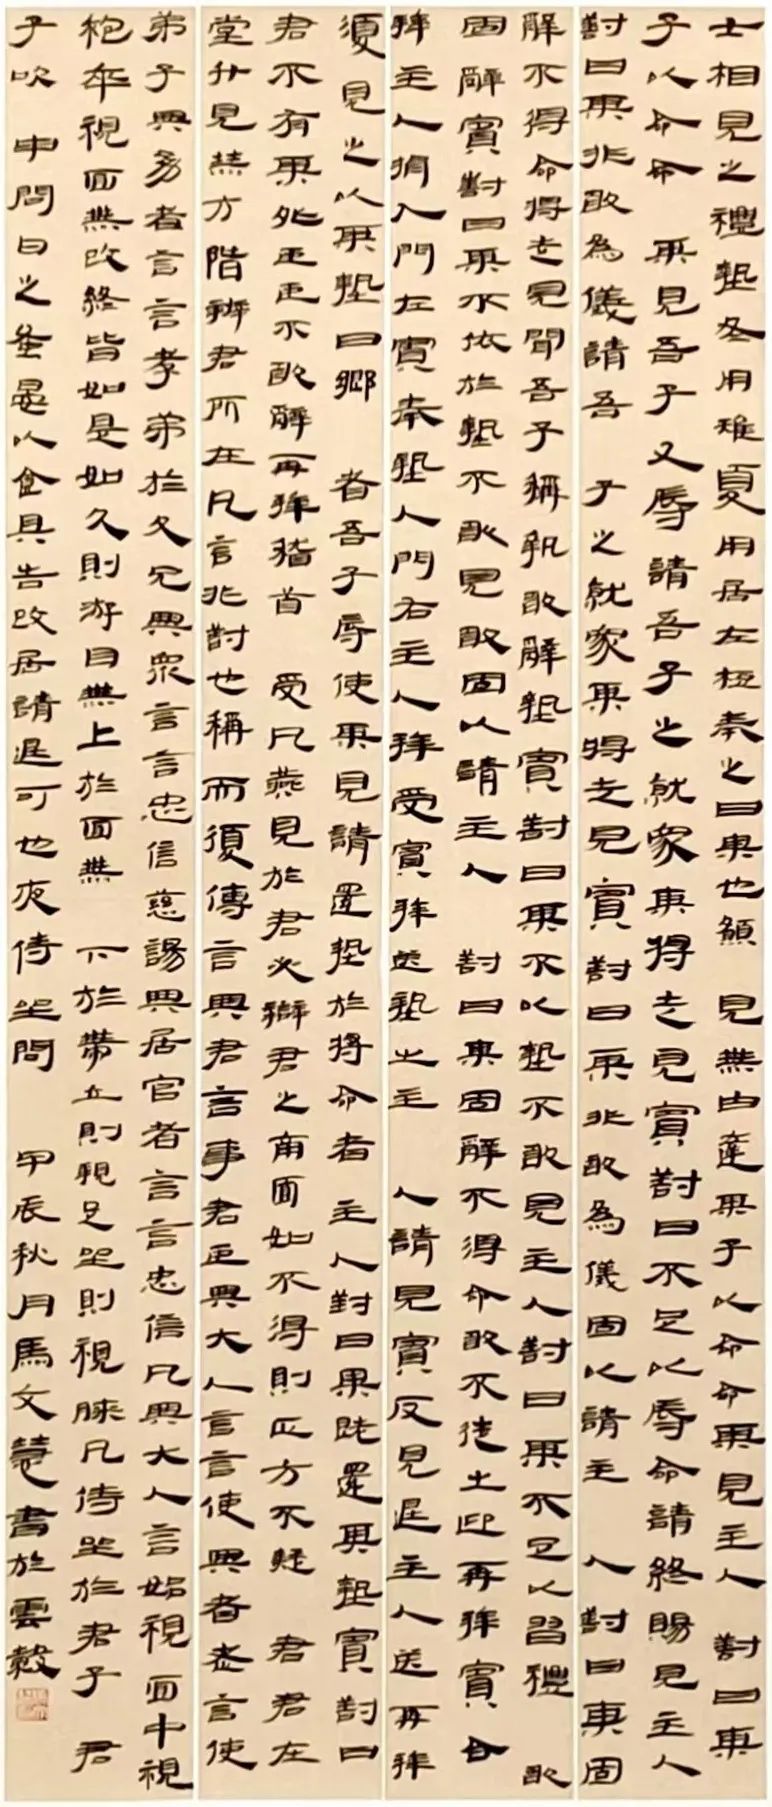 士相見之禮墊冬用雉夏用居左梪奉之曰某也願見無由達某子以命命某見主人對曰某
子以命命某見吾子又辱請吾子之就家某得走見賓對曰不足以辱命請終賜見主人
對曰某非敢為儀請吾子之就家某得走見賓對曰某非敢為儀固以請主人對曰某固
辭不得命得走見聞吾子稱執敢辭墊賓對曰某不以墊不敢見主人對曰某不足以習禮敢
固辭賓對曰某不依於墊不敢見敢固以請主人對曰某固辭不得命敢不徒土迎再拜賓合
拜主人揖入門左賓奉墊入門右主人拜受賓拜送墊之主人請見賓反見退主人送再拜
須見之以其墊曰鄉者吾子辱使某見請還墊於將命者主人對曰某既還其墊賓對曰
君不有某外臣臣不敢辭再拜稽首受凡燕見於君必辯君之南面如不得則正方不疑君君在
堂升見無方階辨君所在凡言非對也稱而須傳言與君言事君臣與大人言言使與者老言使
弟子與幼者言言孝弟於父兄與眾言言忠信慈諹與居官者言言忠信凡與大人言始視面中視
袍卒視面無改終皆如是如父則游目無上於面無下於帶立則視足坐則視膝凡侍坐於君子君
子吹申問日之蚤晏以食具告改居請退可也夜侍坐問甲辰秋月馬文慧書於雲穀